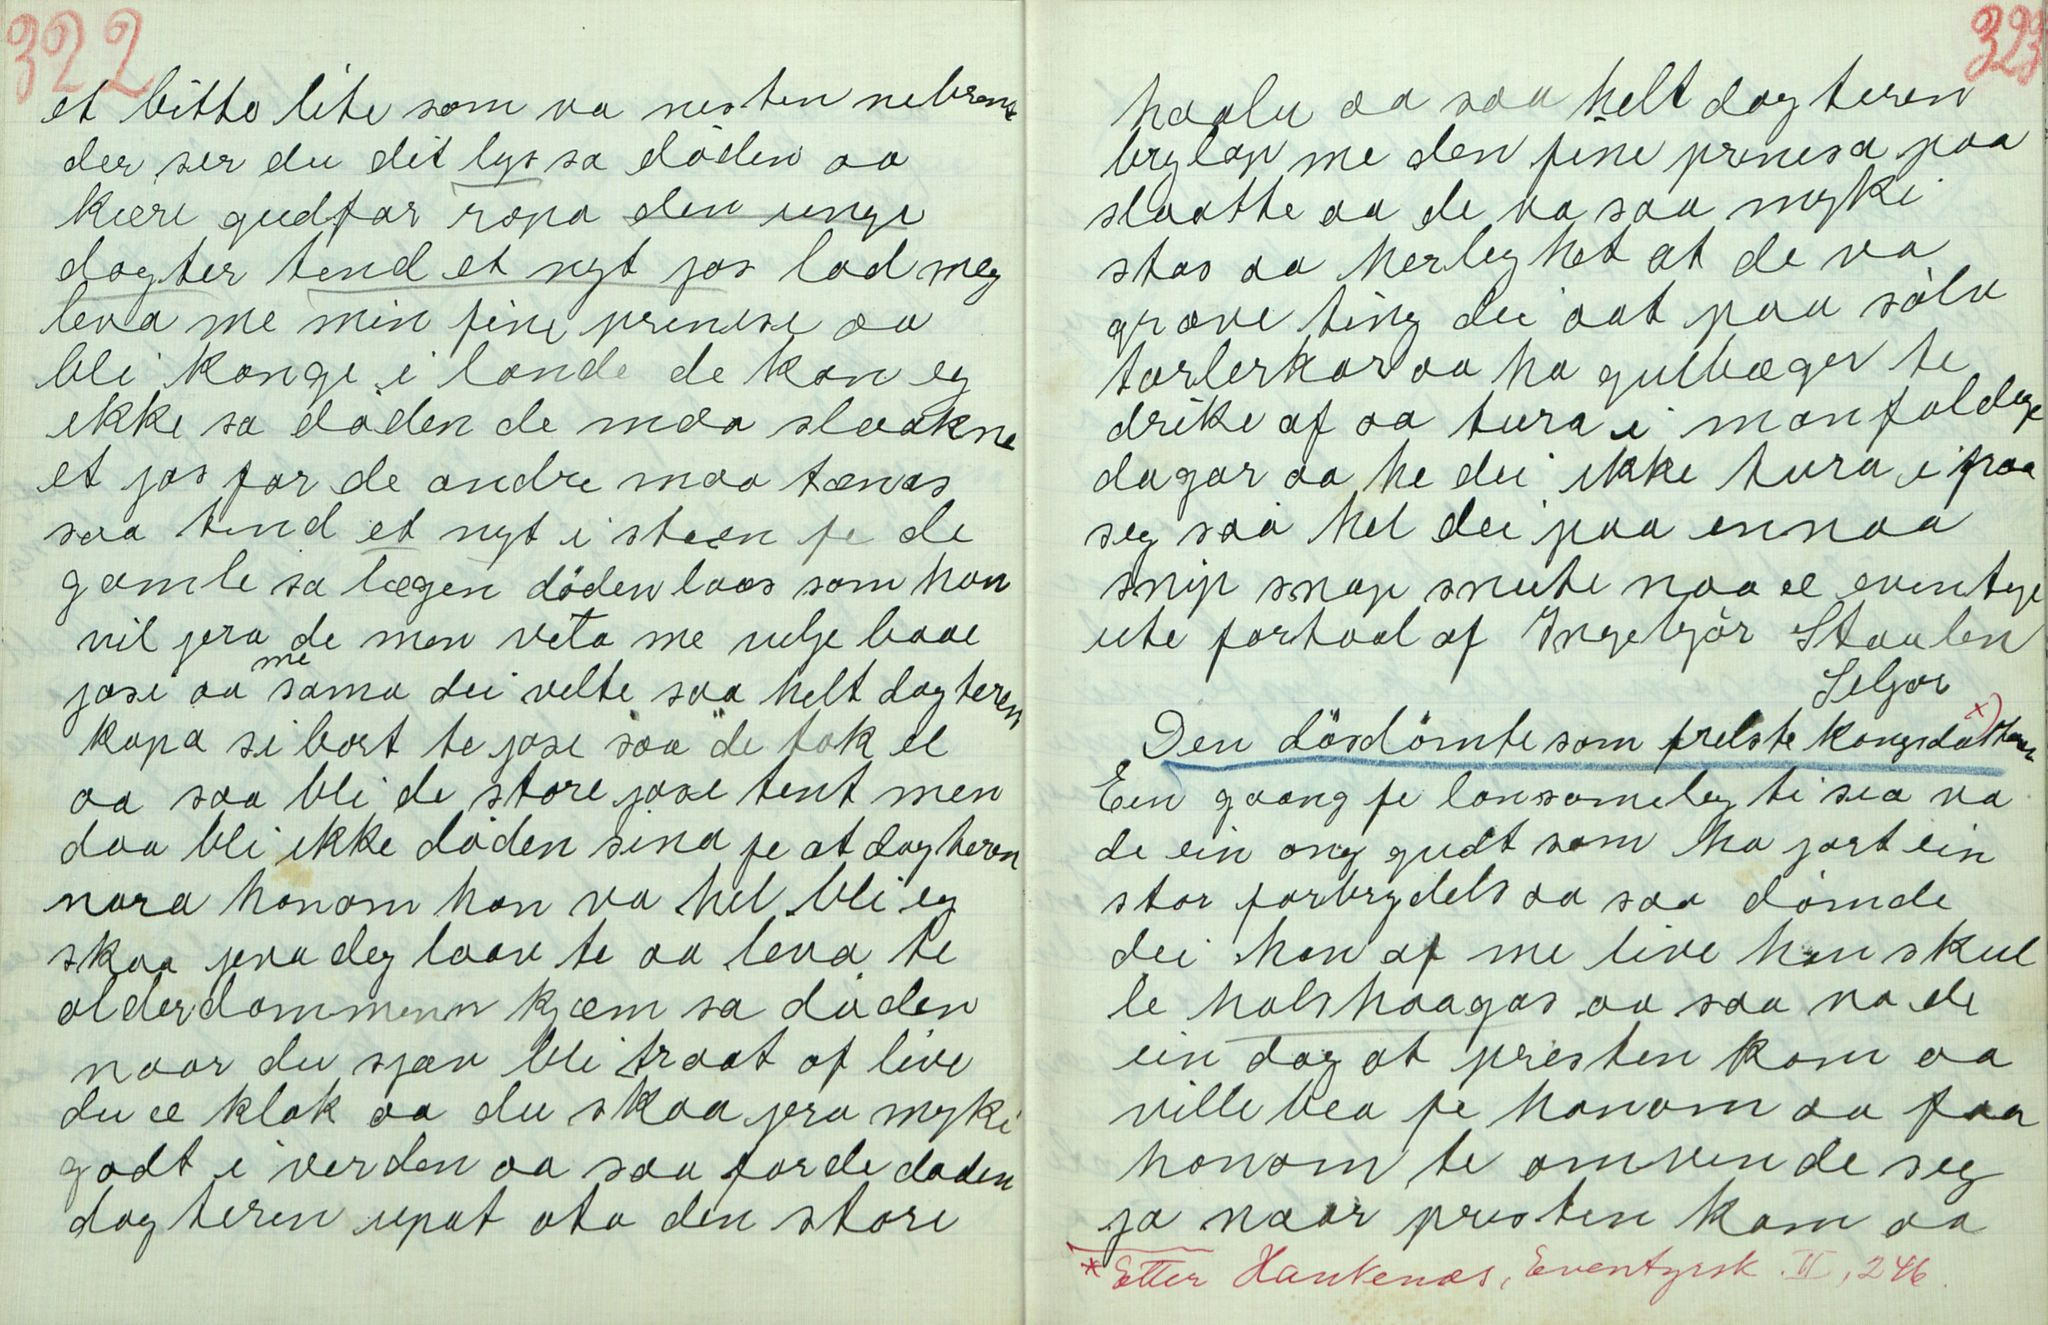 322
et bitto lite som va nesten nebrent
der ser du dit lys sa döden aa
kære gudfar ropa den unge
dogter tend et nyt jos lad meg
leva me min fine prinese aa
bli konge i lande de kan eg
ikke sa döden de maa slaakne
et jos før de andre maa tænas
saa tend et nyt i steen fe de
gamle sa lægen döden loos som han
vil jera de men veta me vilje baae
jose aa me sama dei velte saa helt dogteren
kopa si bort te jose saa de tok el
aa saa bli de store jose tent men
daa bli ikke döden sina fe at dogteren
nara honom han va hel bli eg
skaa jeva deg laav te aa leva te
alderdommenn kjæm sa döden
naar du sjæv bli traat af live
du æ klok aa du skaa jera myki
godt i verden aa saa förde döden
dogteren upat ata den store
323
haalu aa saa helt dogteren
brylop me den fine prinesa paa
slaatte aa de va saa myki
stas aa herleghet at de va
grove ting dei aat paa sölv
tarlerkar aa ha gulbæger te
drike af aa tura i manfoldege
dagar aa he dei ikke tura i fraa
seg saa hel dei paa ennaa
snip snap snute naa æ eventyr
ute fortaal af Ingebjör Staulen
Seljor
Den dösdömte som frelste kongsdotteren x)
Een gaang fe lonsomeleg ti sea va
de ein ong gudt som ha jort ein
stor forbrydels aa saa dömde
dei han af me live han skul
le halshaagas aa saa va de
ein dag at presten kom aa
ville bea fe honom aa faa
honom te omvende seg
ja naar presten kom aa
* Etter Hankenæs, Eventyrsk. II, 246.